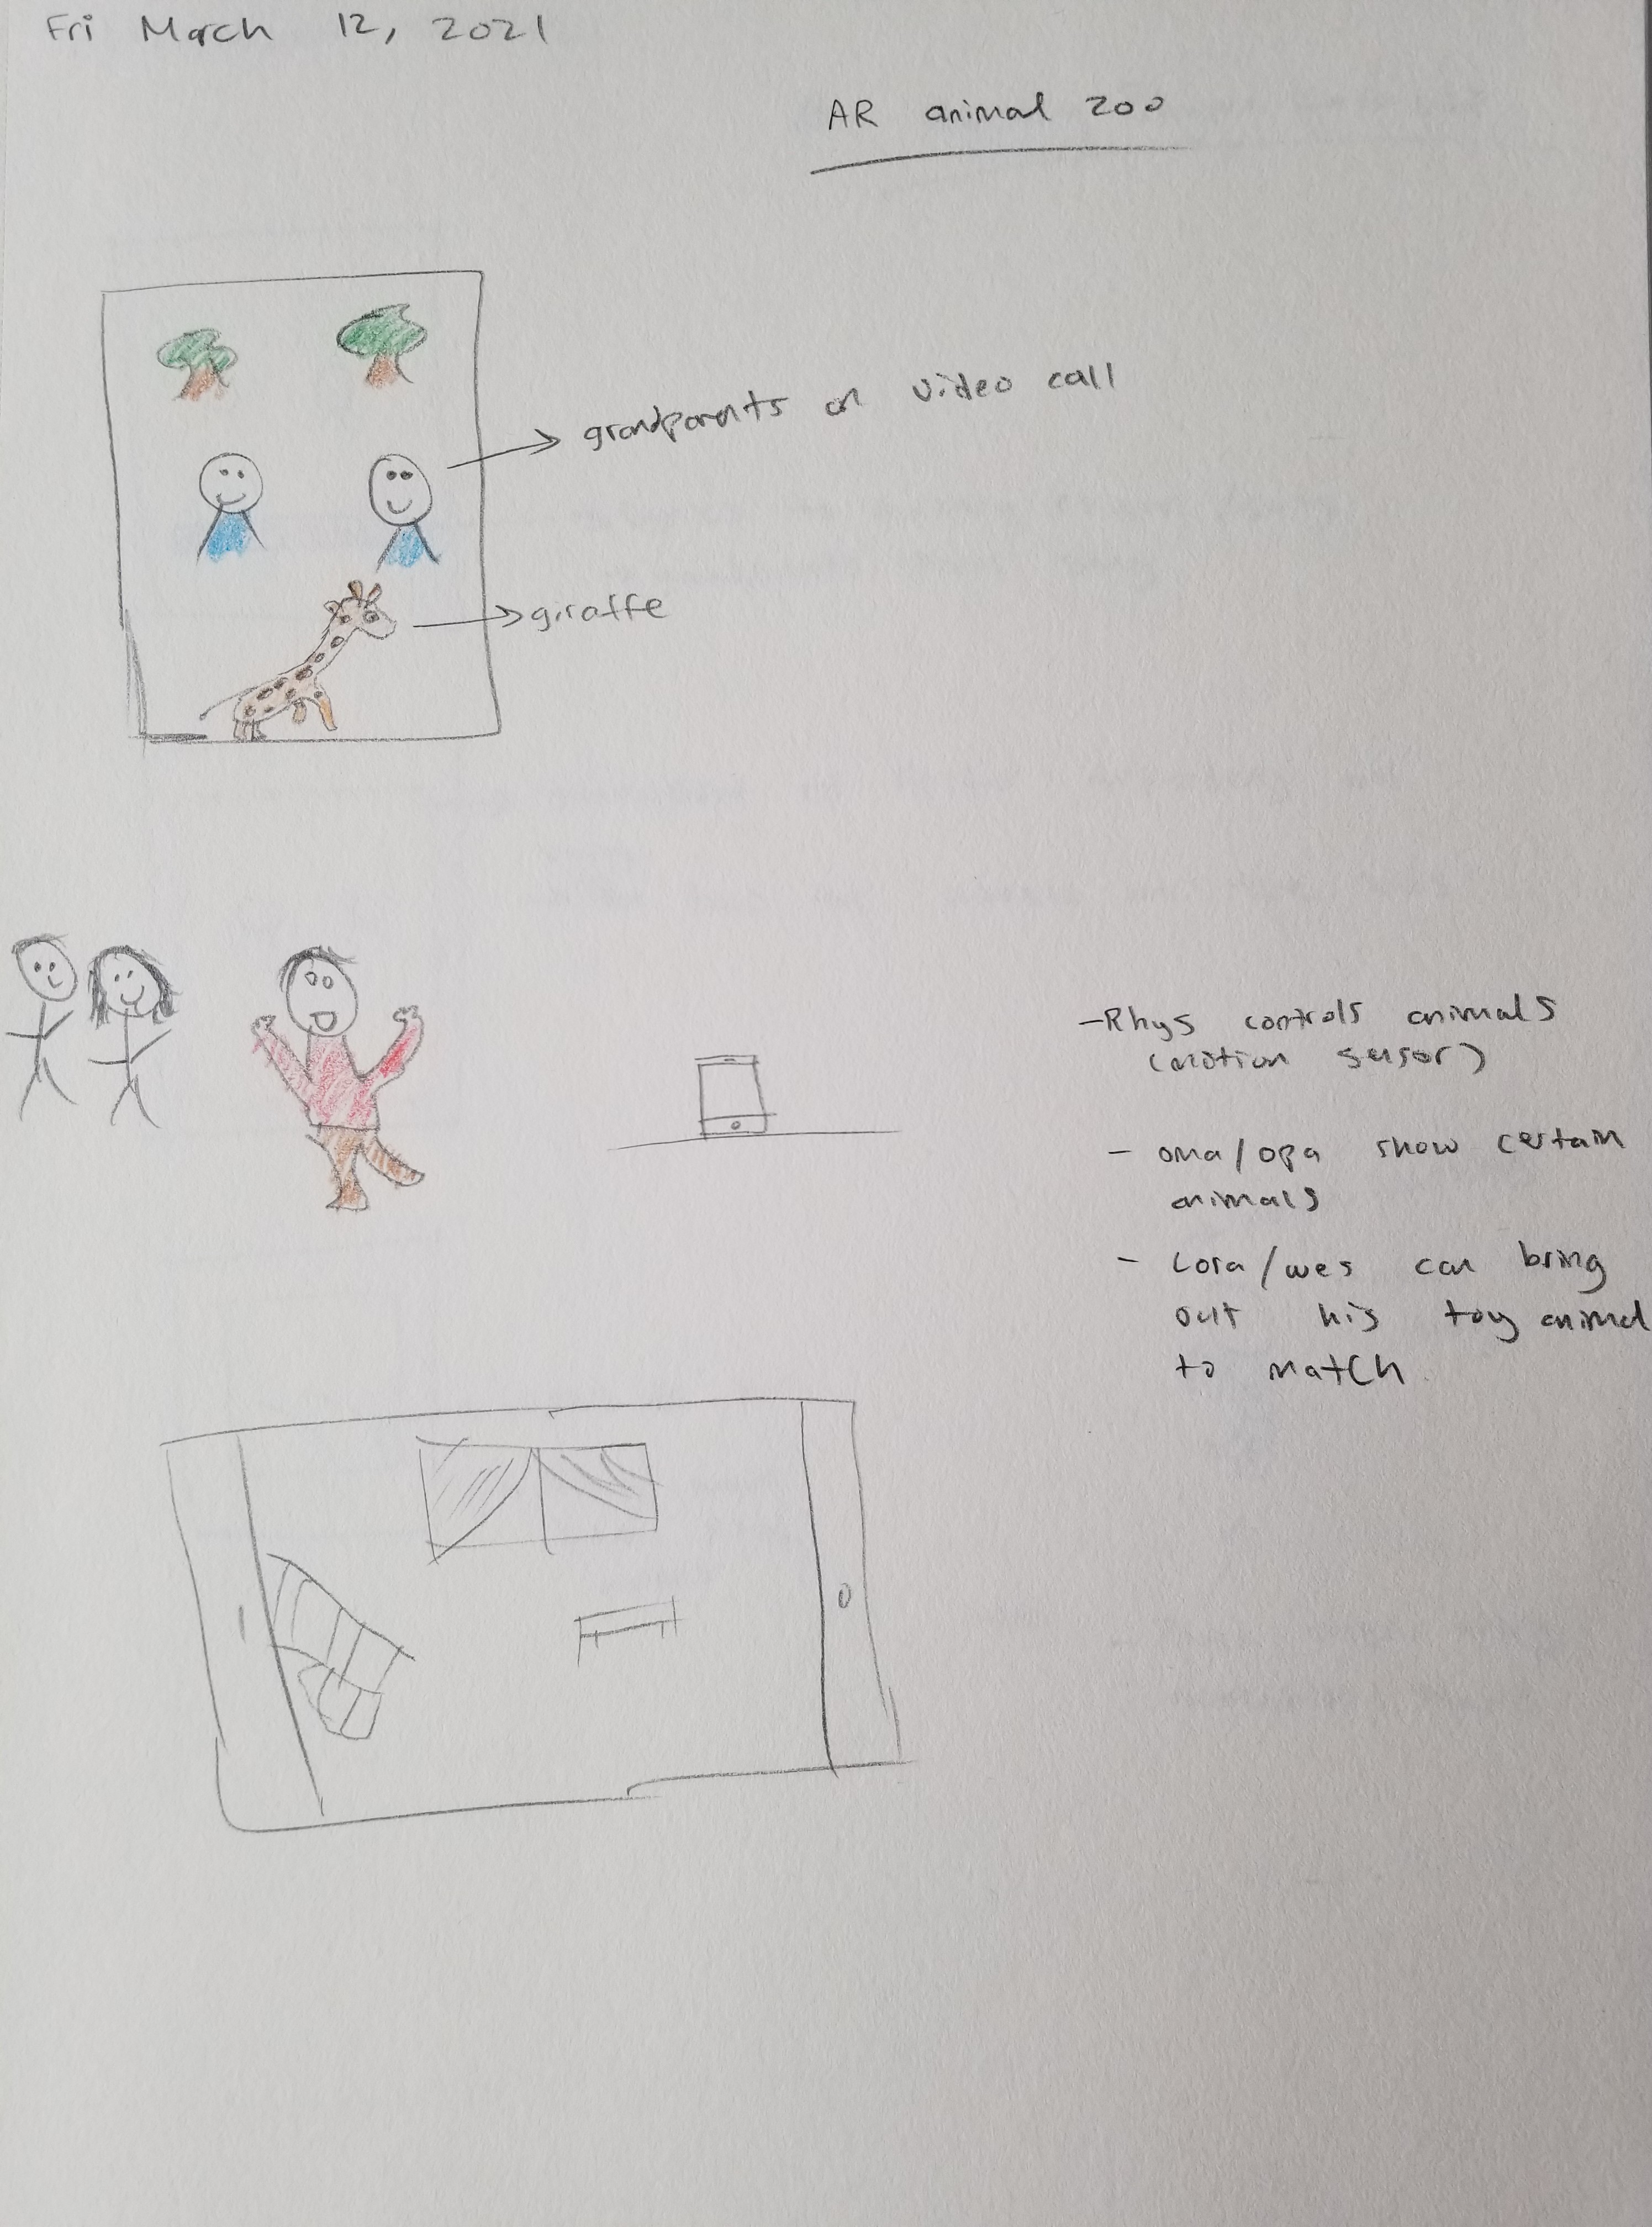 Fri March 12, 2021
AR animal zoo
grandparents on video call
giraffe
-Rhys controls animals
(motion sensor)
- oma/opa show certain
animals
- Lora/wes can bring
out his toy animal
to match